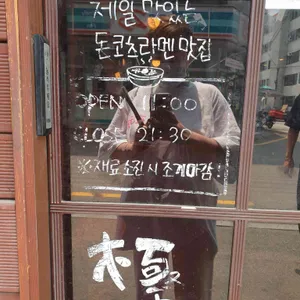 제일 맛있는
돈코츠라멘 맛집
OPEN 11:00
CLOSE 21:30
※재료 소진 시 조기마감!